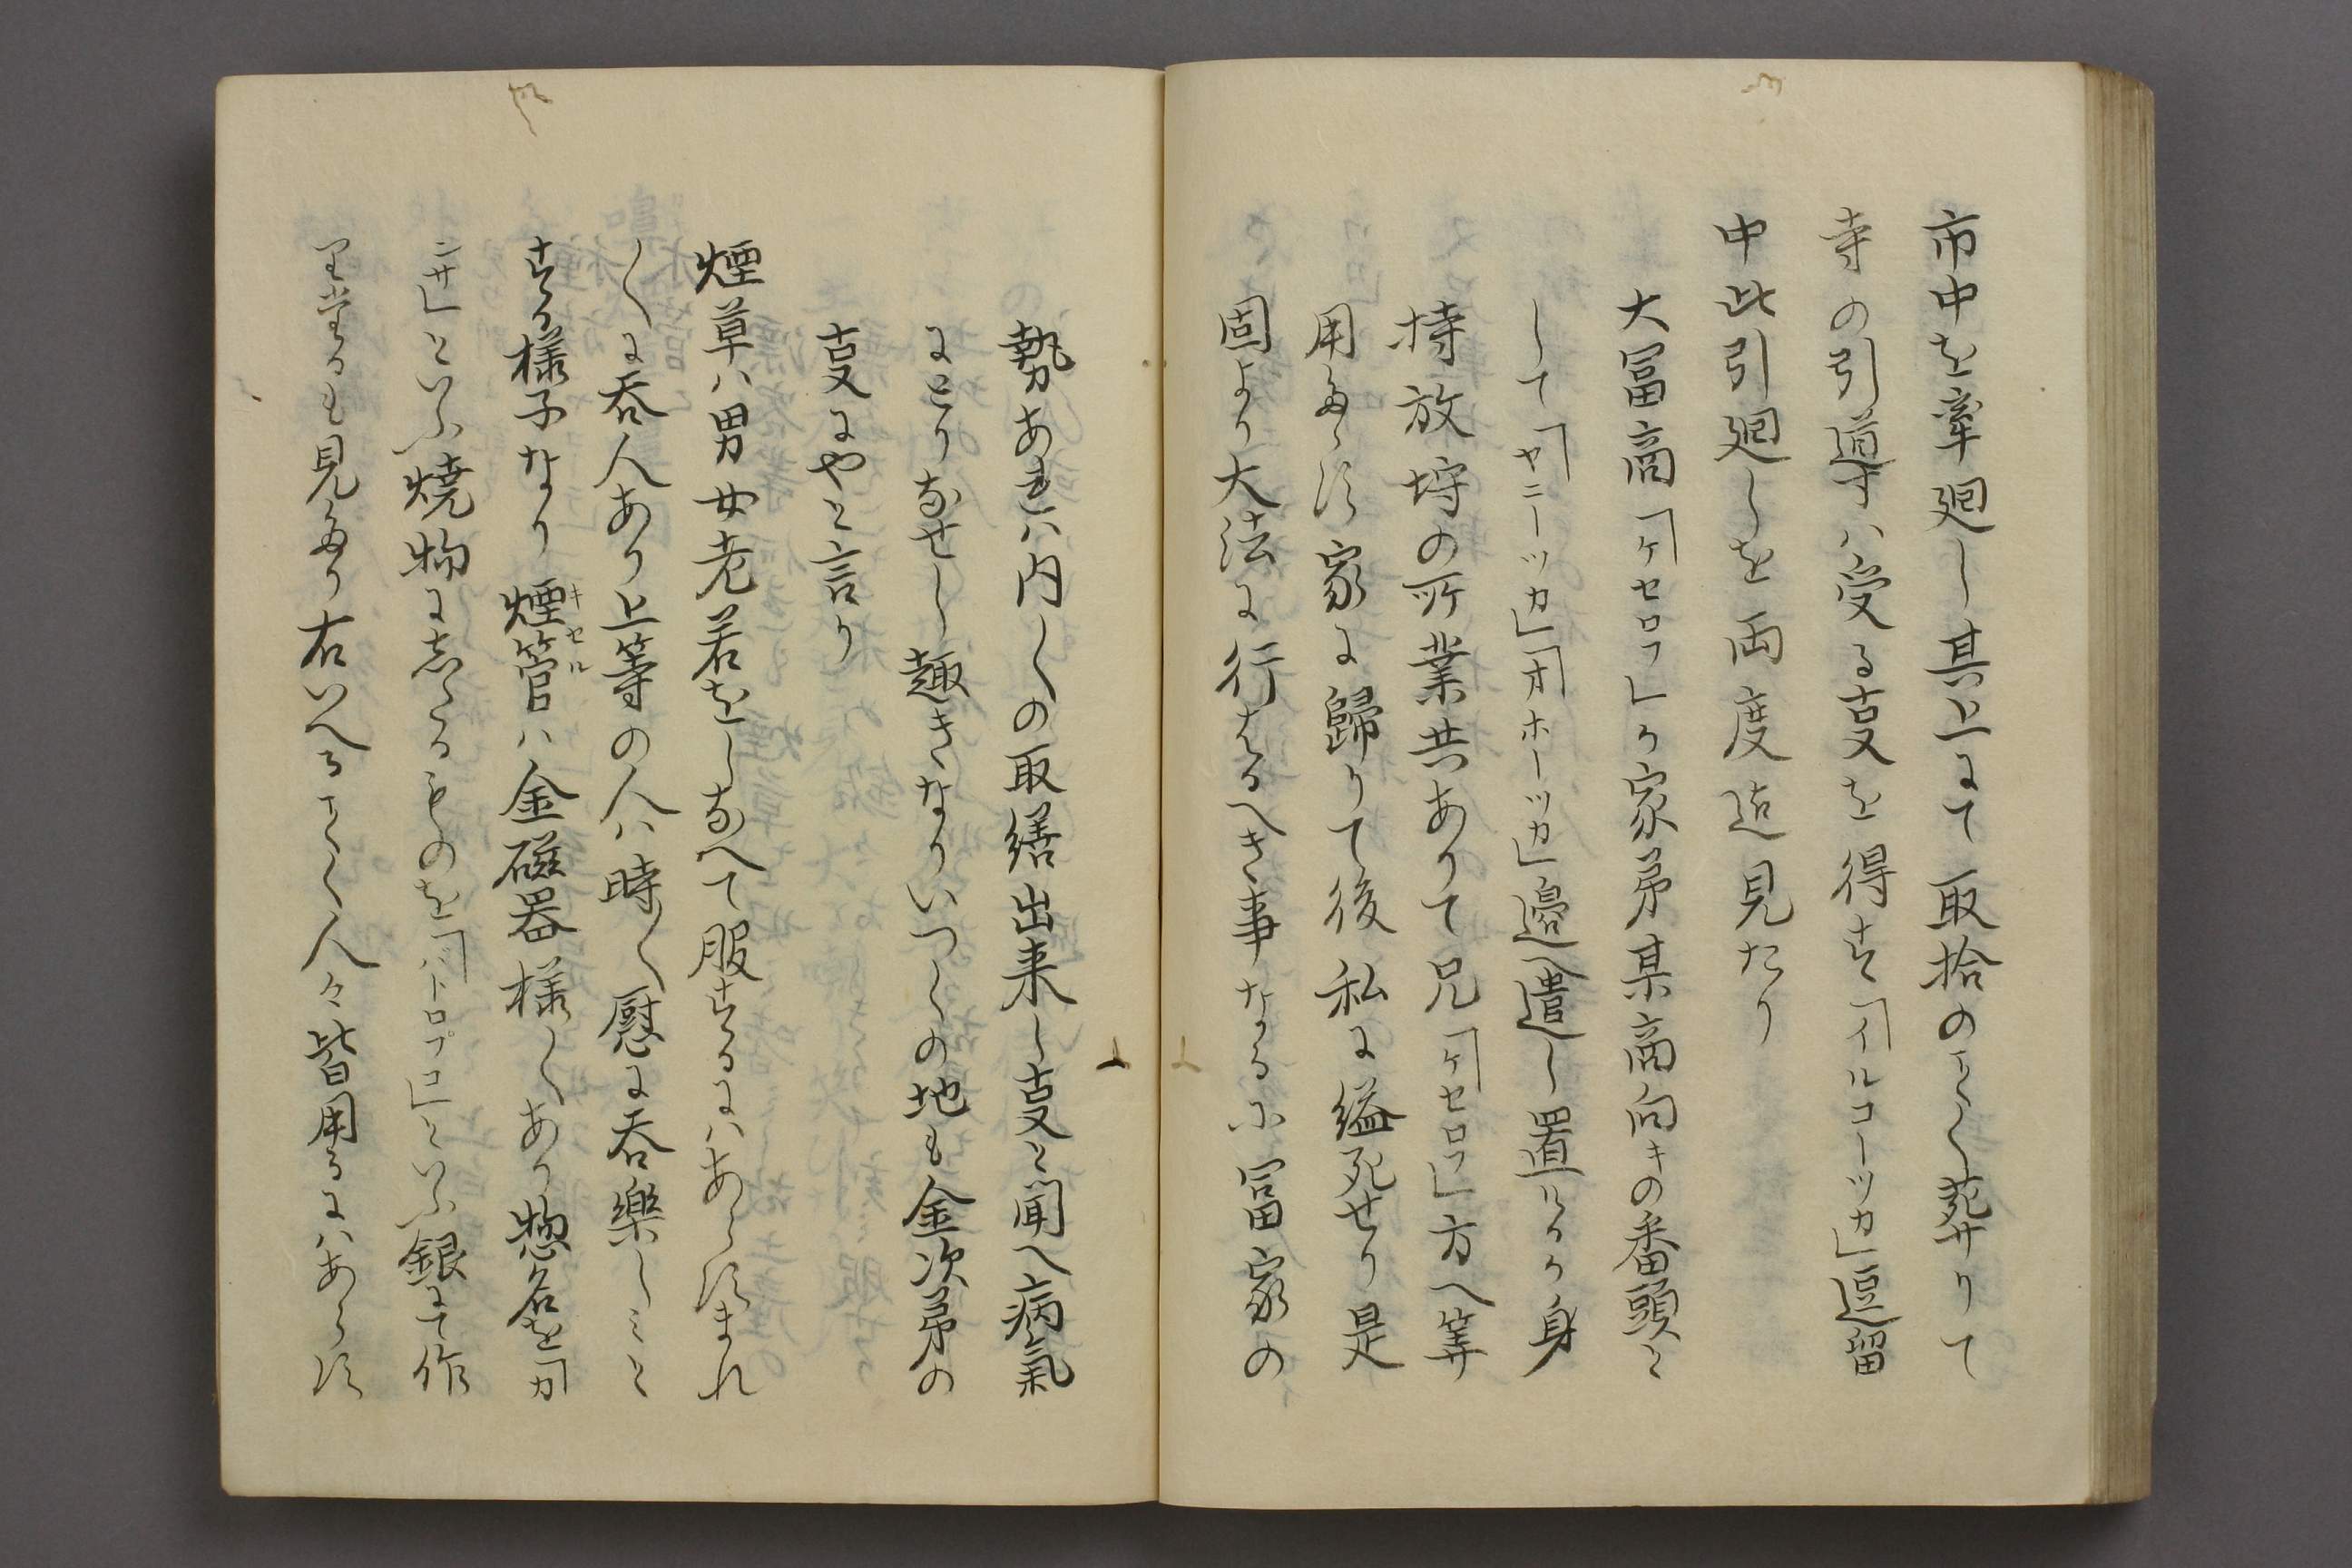 市中を牽廻し其上にて取拾のことく葬りて
寺の引導ハ受る㕝を得す「イルコーツカ」逗留
中此引廻しを両度迄見たり
大冨商「ケセロフ」か家弟某商向キの番頭と
して「ヤニーツカ」「オホーツカ」邉へ遣し置けるか身
持放埓の所業共ありて兄「ケセロフ」方へ筭
用たゝす家に歸りて後私に縊死せり是
固より大法に行はるへき事なるに冨家の
勢あれハ内〱の取繕出来し㕝と聞へ病氣
にとりなせし趣きなりいつ〱の地も金次弟の
㕝にやと言り
煙草ハ男女老若をしなへて服するにハあらすまれ
〱に呑人あり上等の人ハ時〱慰に呑樂しミと
する様子なり煙管ハ金磁器様〱あり惣名を「カ
ンサ」といふ焼物にしたるものを「バトロプコ」といふ銀にて作
りたるも見たり右いへることく人々皆用るにハあらす